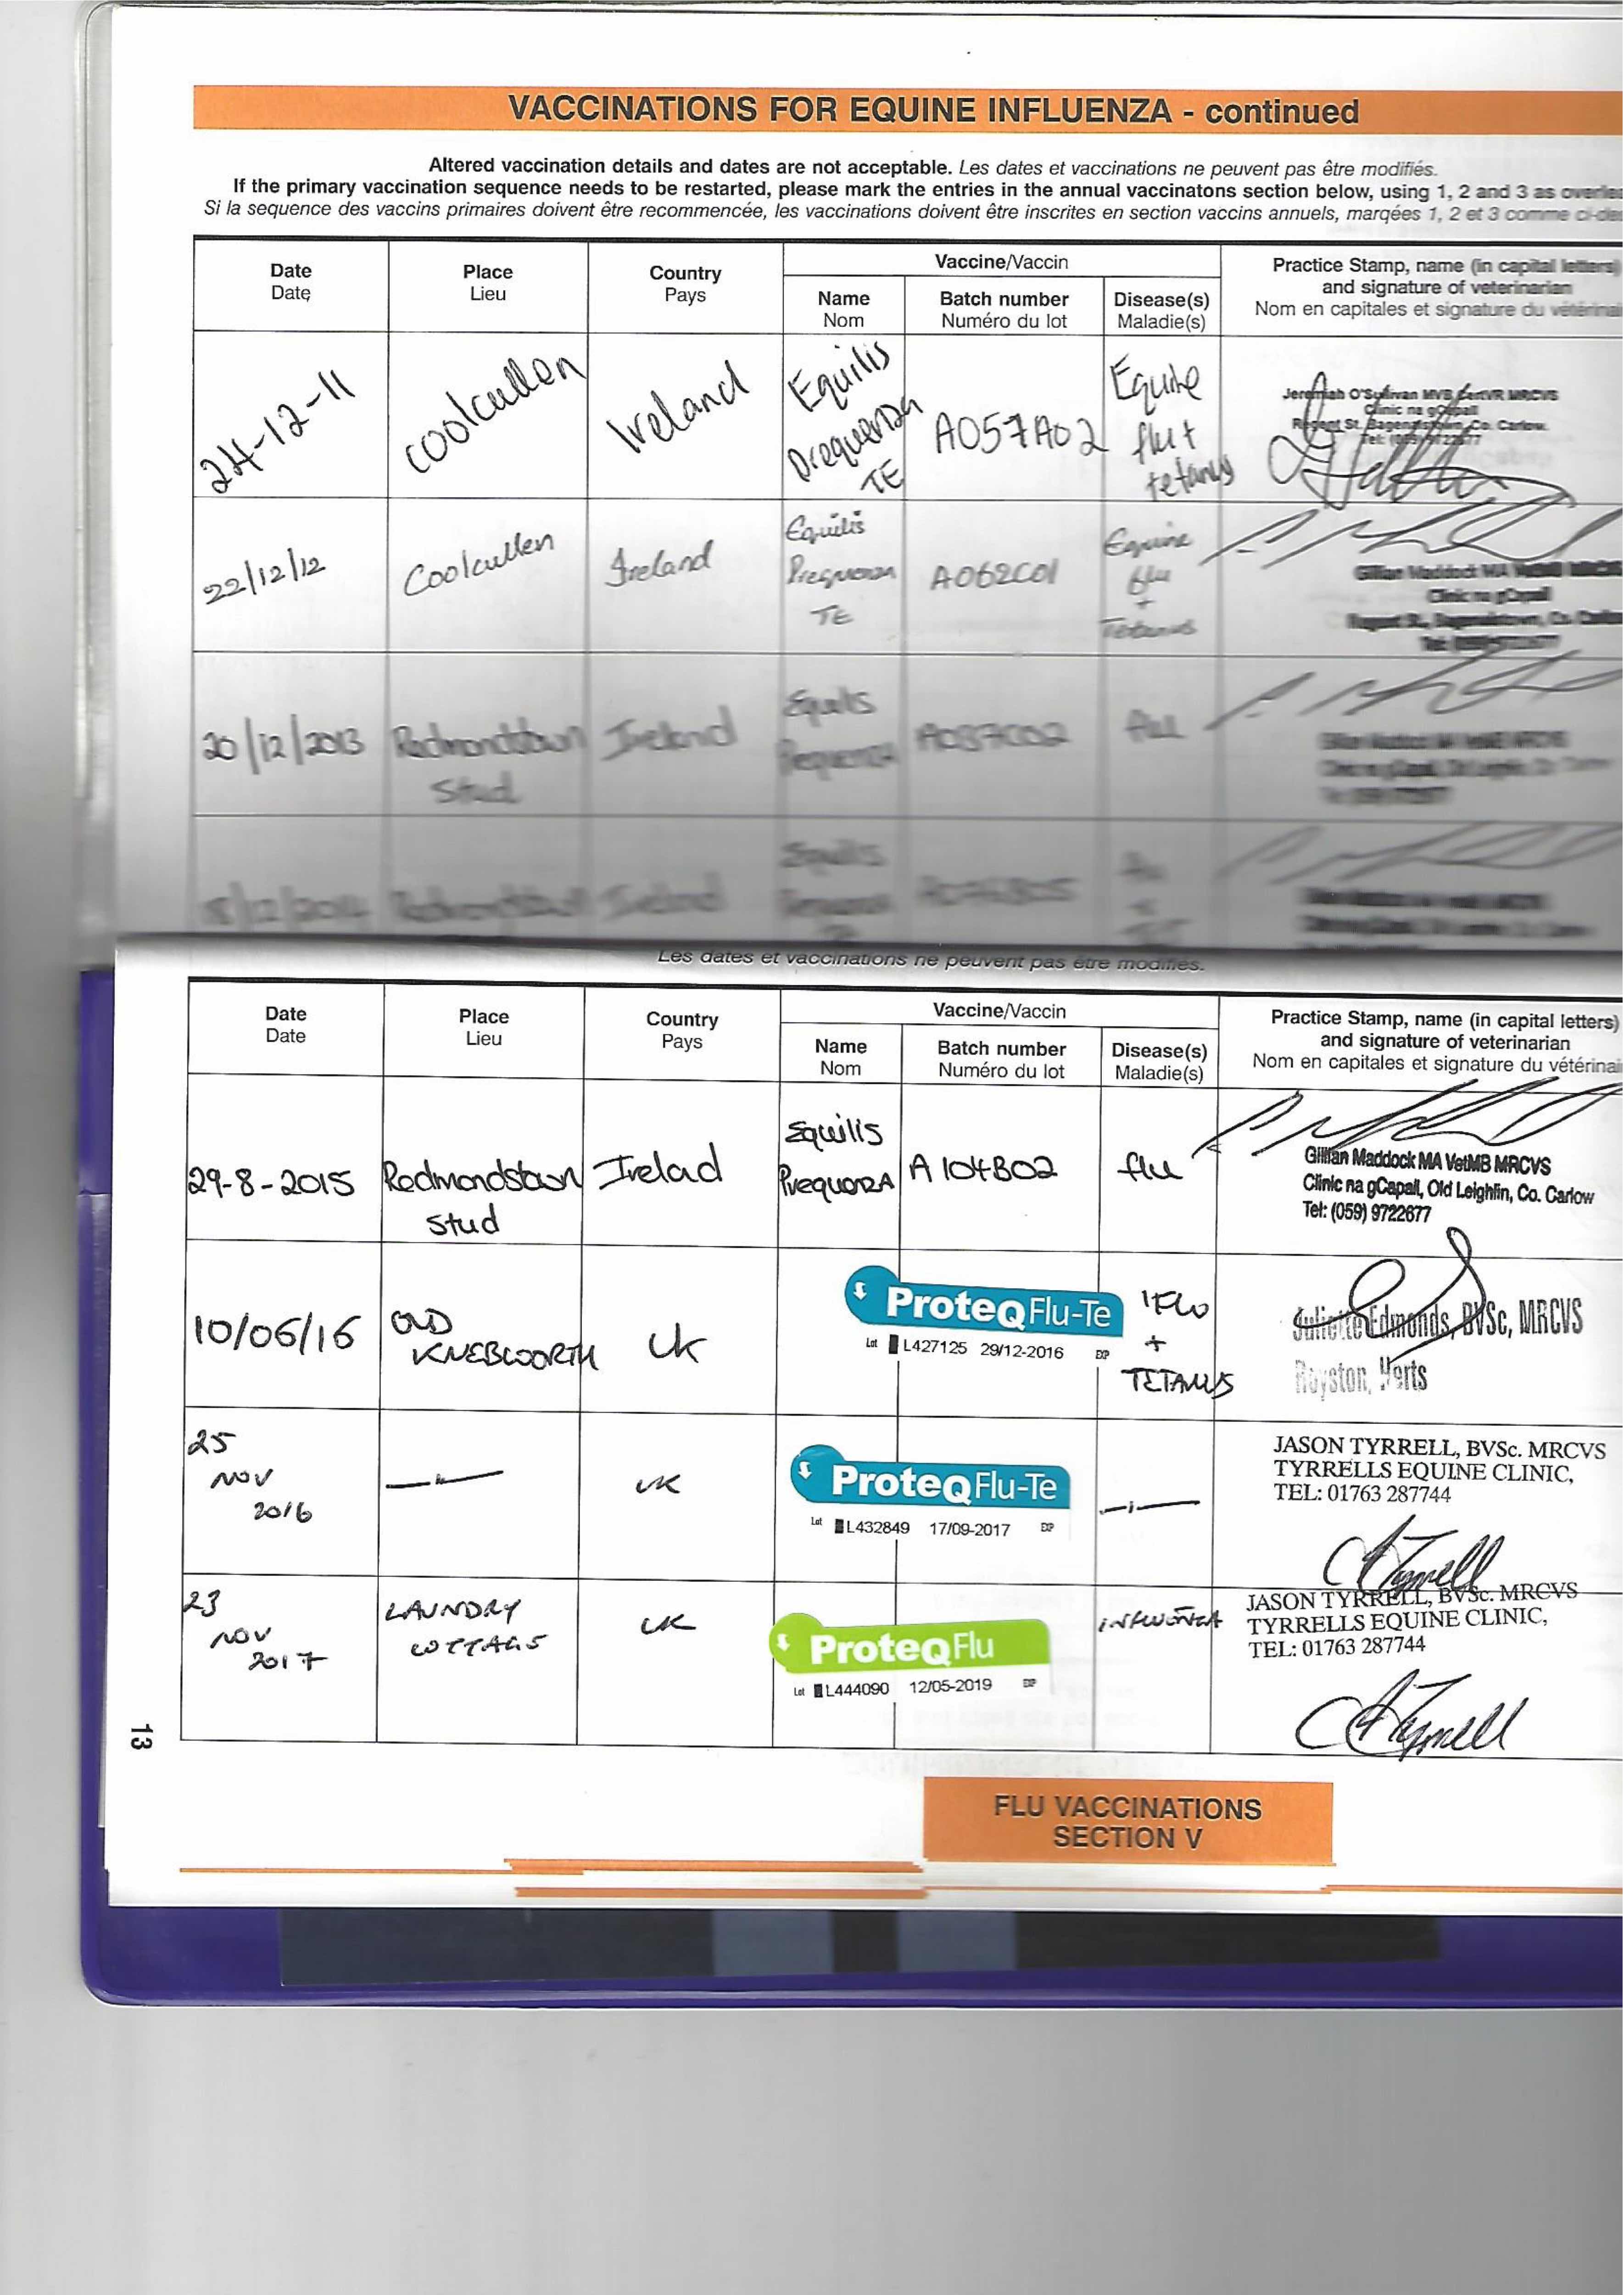 VACCINATIONS FOR EQUINE INFLUENZA - continued
Altered vaccination details and dates are not acceptable. Les dates et vaccinations ne peuvent pas être modifiés.
If the primary vaccination sequence needs to be restarted, please mark the entries in the annual vaccinatons section below, using 1, 2 and 3 as
Si la sequence des vaccins primaires doivent être recommencée, les vaccinations doivent être inscrites en section vaccins annuels, marqées 1, 2 et 3 comme
Date
Date
Place
Lieu
Country
Pays
Vaccine/Vaccin
Name
Nom
Batch number
Numéro du lot
Disease(s)
Maladie(s)
Practice Stamp, name (in capital letters)
and signature of veterinarian
Nom en capitales et signature du
24-12-11
Coolcullen
Ireland
Equilis
Prequenza
TE
A057A02
Equine
flu +
tetanus
Jeremiah O'Sullivan MVB CertVR MRCVS
Clinic na gCapall
Regent St. Bagenalstown, Co. Carlow.
22/12/12
Coolcullen
Ireland
Equilis
Prequenza
TE
A062C01
Equine
flu
+
Tetanus
Gillian Maddock MA
Clinic na gCapall
20/12/2013
Redmondstown
Stud
Ireland
Equilis
Prequenza
flu
/12/2014
Redmondstown
Ireland
Equilis
Les dates et vaccinations ne peuvent pas être modifiés.
Date
Date
Place
Lieu
Country
Pays
Vaccine/Vaccin
Name
Nom
Batch number
Numéro du lot
Disease(s)
Maladie(s)
Practice Stamp, name (in capital letters)
and signature of veterinarian
Nom en capitales et signature du vétérinai
29-8-2015
Redmondstown
Stud
Irelad
Equilis
Prequenza
A104B02
flu
Gillian Maddock MA VetMB MRCVS
Clinic na gCapall, Old Leighlin, Co. Carlow
Tel: (059) 9722677
10/06/16
OLD
KNEBWORTH
UK
ProteqFlu-Te
Lot L427125 29/12-2016 EXP
FLU
+
TETANUS
Juliette Edmonds, BVSc, MRCVS
Royston, Herts
25
NOV
2016
UK
ProteqFlu-Te
Lot L432849 17/09-2017 EXP
JASON TYRRELL, BVSc. MRCVS
TYRRELLS EQUINE CLINIC,
TEL: 01763 287744
23
NOV
2017
LAUNDRY
COTTAGE
UK
ProteqFlu
Lot L444090 12/05-2019 EXP
INFLUENZA
JASON TYRRELL, BVSc. MRCVS
TYRRELLS EQUINE CLINIC,
TEL: 01763 287744
13
FLU VACCINATIONS
SECTION V